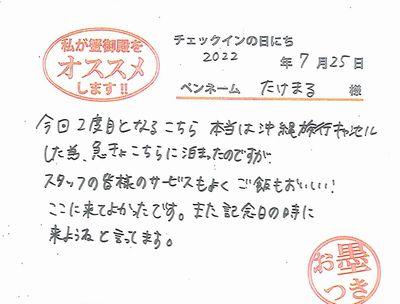 私が蟹御殿を
オススメ
します!!
チェックインの日にち
2022 年 7月 25日
ペンネーム たけまる 様
今回2度目となるこちら 本当は沖縄旅行キャンセル
した為、急きょこちらに泊まったのですが
スタッフの皆様のサービスもよく ご飯もおいしい!
ここに来てよかったです。また記念日の時に
来ようねと言ってます。
お墨
つき